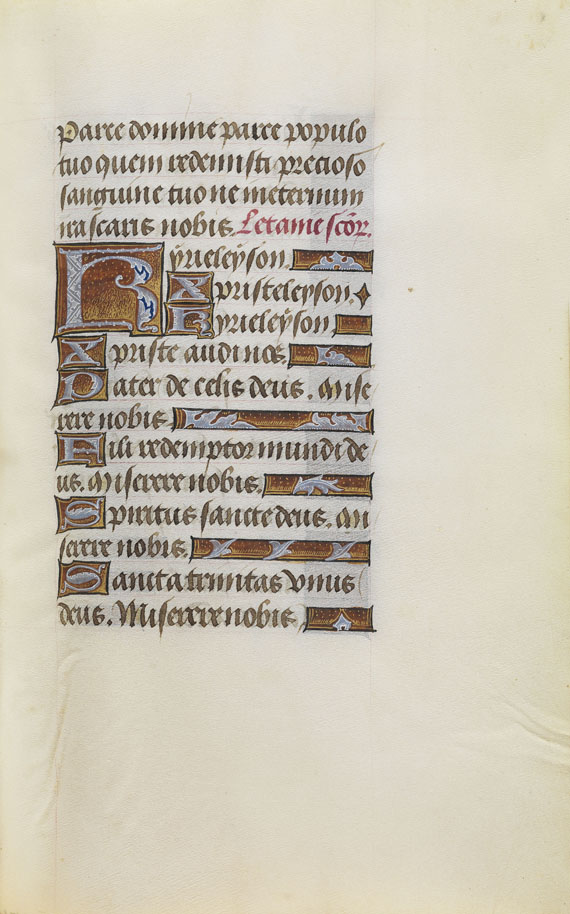 Parce domine parce populo
tuo quem redemisti precioso
sanguine tuo ne ineternum
irascaris nobis. Letanie scōr.
Kyrieleyson.
Xpristeleyson.
Kyrieleyson
Xpriste audi nos.
Pater de celis deus. Mise
rere nobis.
Fili redemptor mundi de
us. Miserere nobis.
Spiritus sancte deus. Mi
serere nobis.
Sancta trinitas vnus
deus. Miserere nobis.